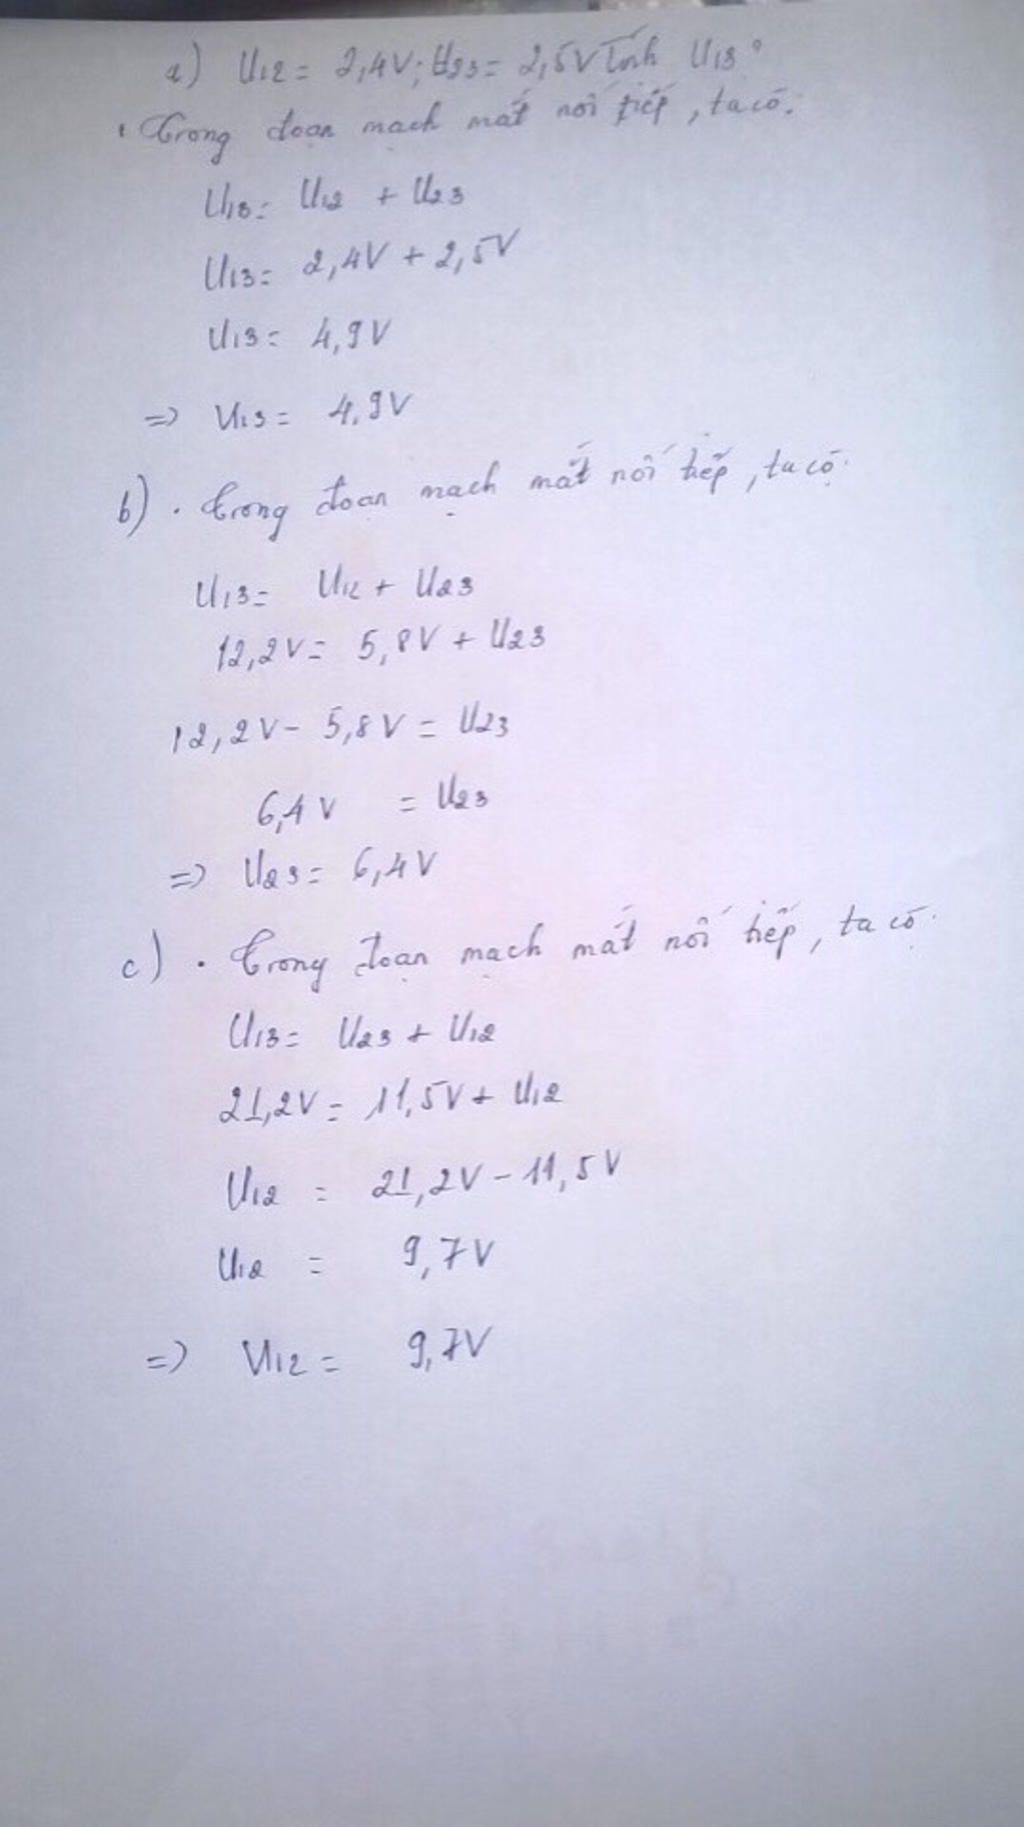 a) U12 = 2,4V; U23 = 2,5V Tính U13?
Trong đoạn mạch mắt nối tiếp, ta có:
U13 = U12 + U23
U13 = 2,4V + 2,5V
U13 = 4,9V
=> U13 = 4,9V
b) . Trong đoạn mạch mắt nối tiếp, ta có:
U13 = U12 + U23
12,2V = 5,8V + U23
12,2V - 5,8V = U23
6,4V = U23
=> U23 = 6,4V
c) . Trong đoạn mạch mắt nối tiếp, ta có:
U13 = U23 + U12
21,2V = 11,5V + U12
U12 = 21,2V - 11,5V
U12 = 9,7V
=> U12 = 9,7V